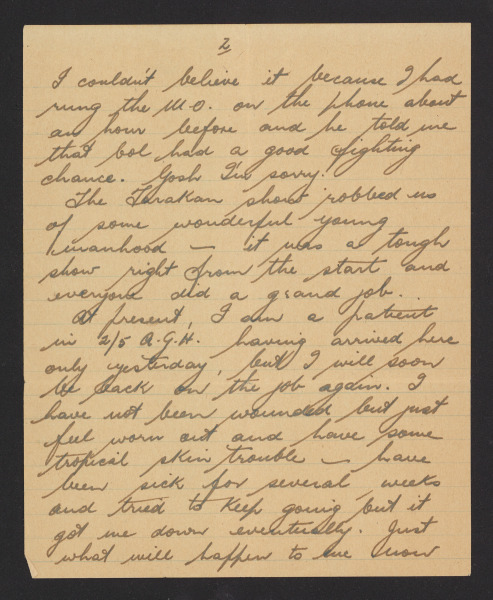 2
I couldn't believe it because I had
rung the M.O. on the phone about
an hour before and he told me
that Col had a good fighting
chance. Gosh I'm sorry!
The Tarakan show robbed us
of some wonderful young
manhood — it was a tough
show right from the start and
everyone did a grand job.
At present, I am a patient
in 2/5 A.G.H. having arrived here
only yesterday, but I will soon
be back on the job again. I
have not been wounded but just
feel worn out and have some
tropical skin trouble — have
been sick for several weeks
and tried to keep going but it
got me down eventually. Just
what will happen to me now